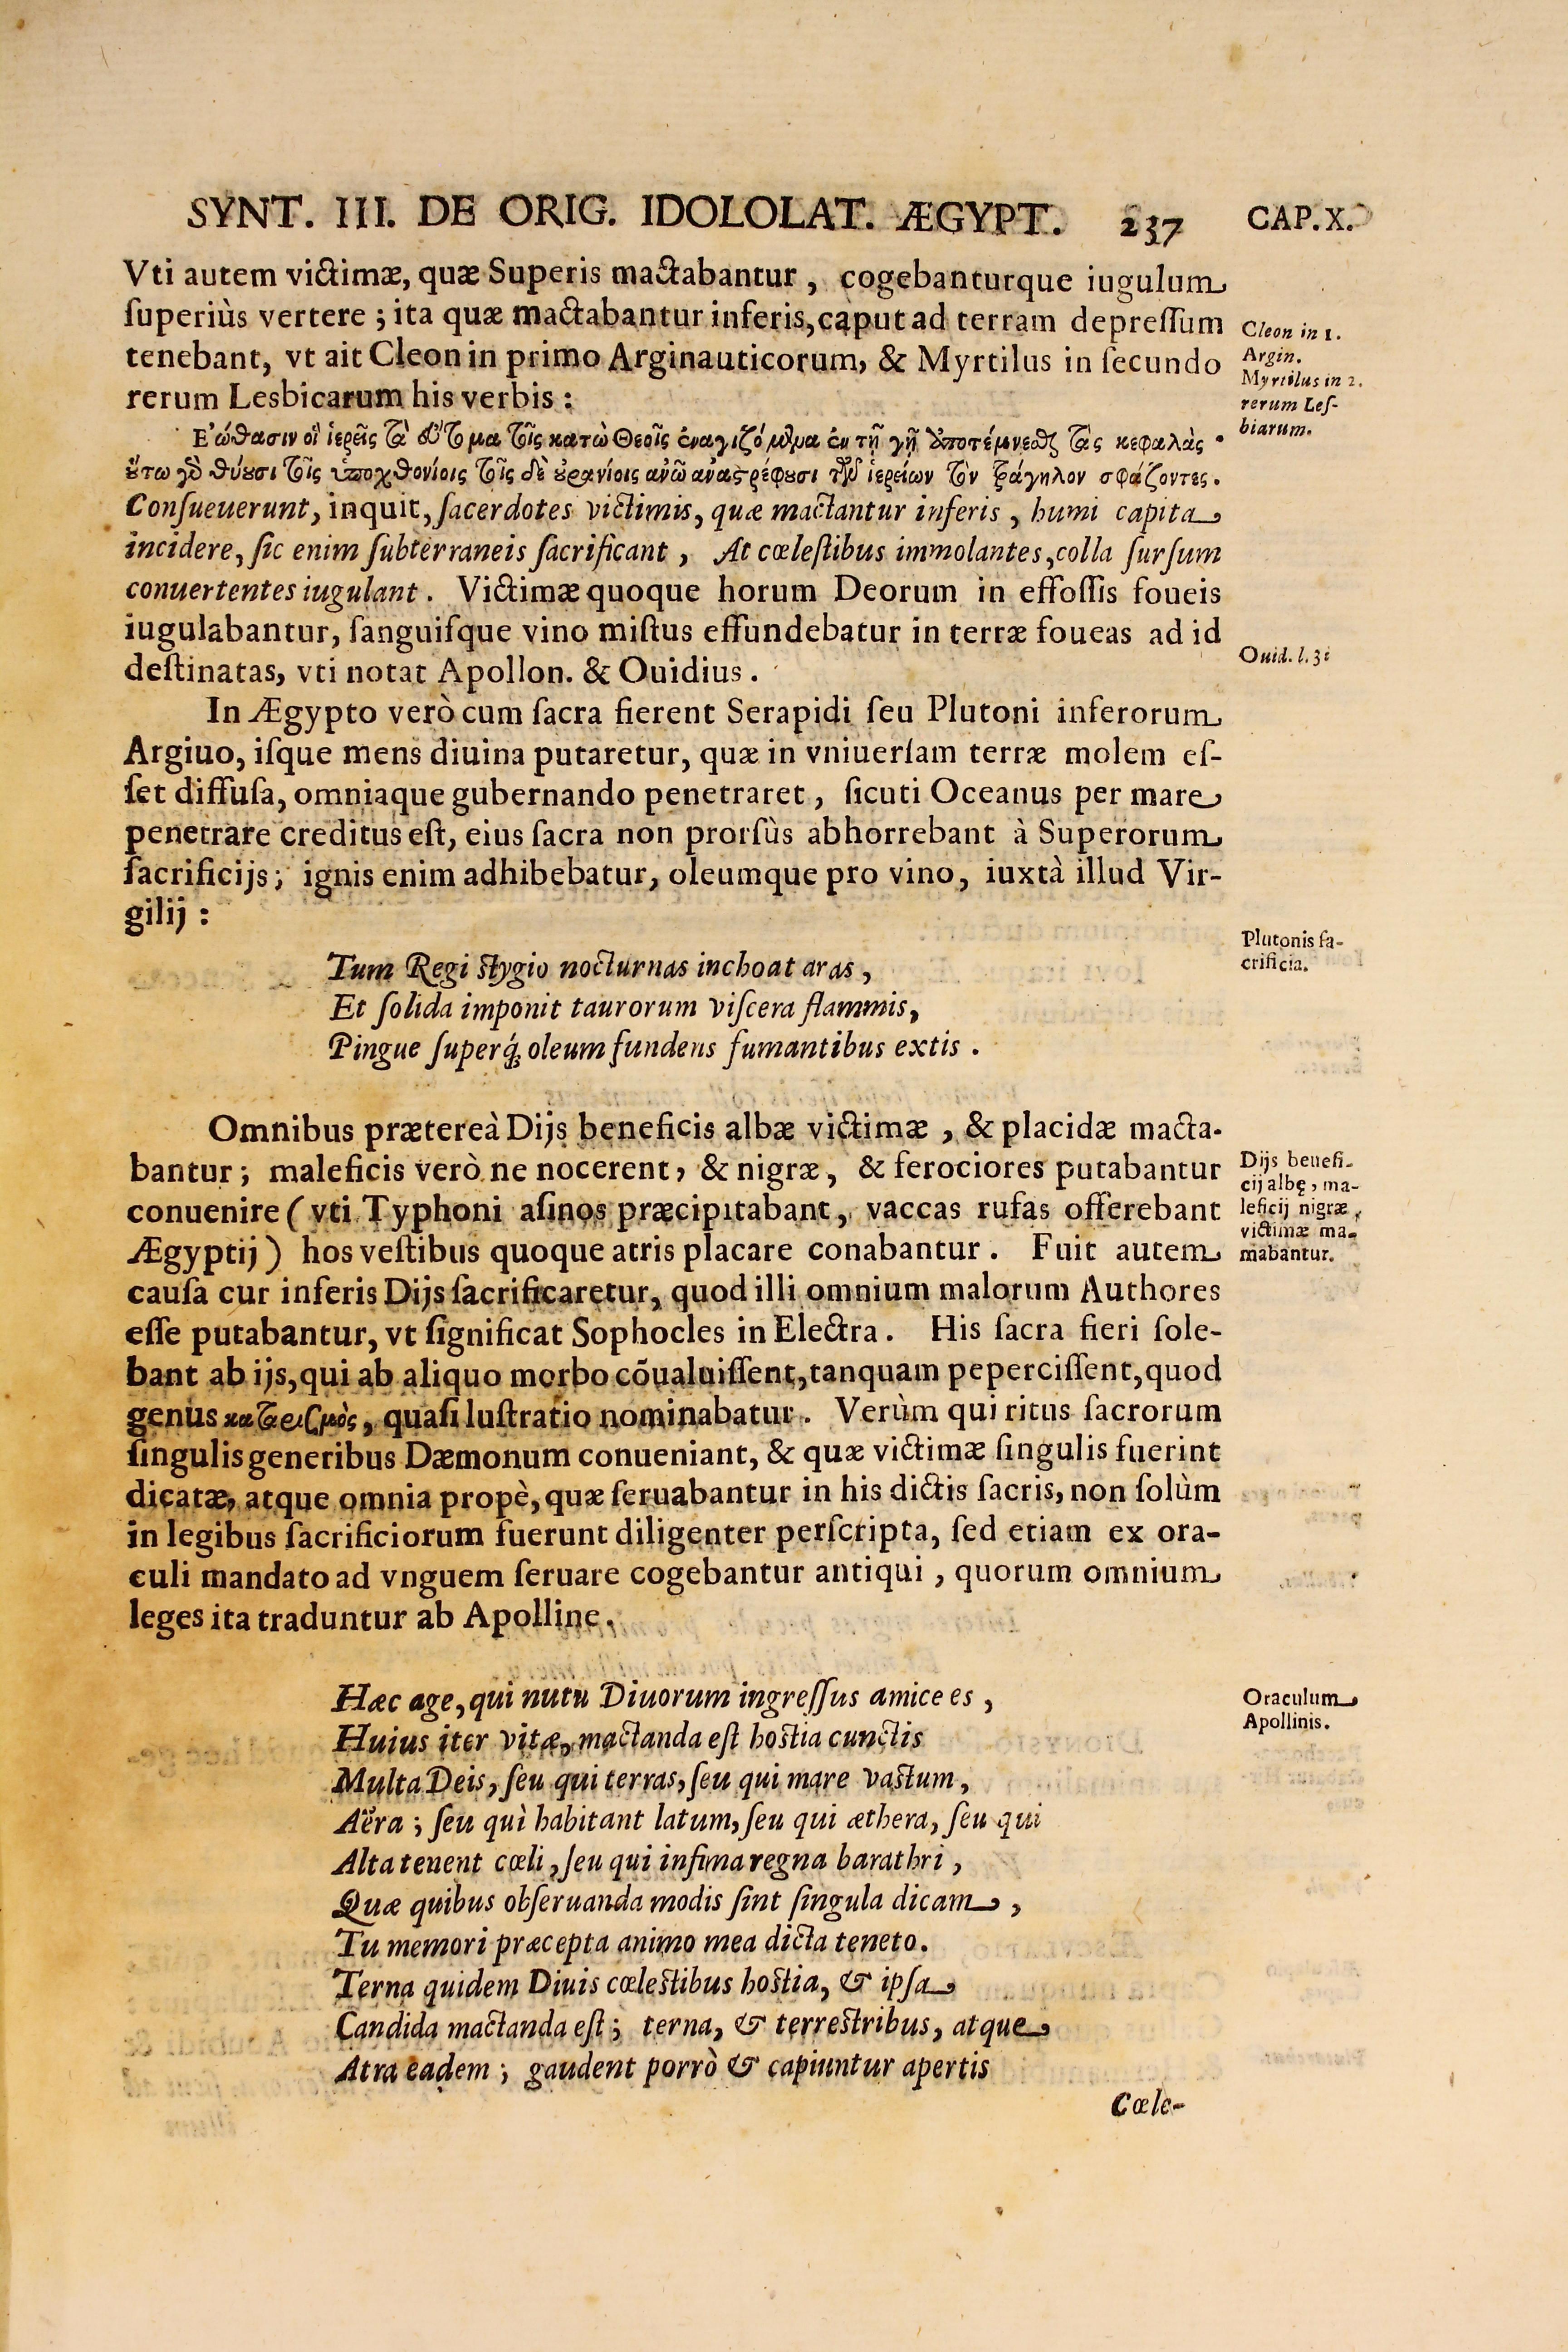 SYNT. III. DE ORIG. IDOLOLAT. ÆGYPT. 237 CAP. X.
Vti autem victimæ, quæ Superis mactabantur, cogebanturque iugulum
ſuperiùs vertere; ita quæ mactabantur inferis, caput ad terram depreſſum
tenebant, vt ait Cleon in primo Arginauticorum, & Myrtilus in ſecundo
rerum Lesbicarum his verbis:
Cleon in 1.
Argin.
Myrtilus in 2.
rerum Leſ-
biarum.
Εἰώθασιν οἱ ἱερεῖς τὰ τοῖς κατω Θεοῖς ἐναγιζόμενα ἐν τῇ γῇ ἀποτέμνεσθαι τὰς κεφαλὰς.
ὕτω γὸ θύουσι τοῖς ὑποχθονίοις τοῖς δὲ οὐρανίοις ανῶ αναστρέφουσι τῶν ἱερείων τὸν τράχηλον σφάζοντες.
Conſueuerunt, inquit, ſacerdotes victimis, quæ mactantur inferis, humi capita
incidere, ſic enim ſubterraneis ſacrificant, At cœleſtibus immolantes, colla ſurſum
conuertentes iugulant. Victimæ quoque horum Deorum in effoſſis foueis
iugulabantur, ſanguiſque vino miſtus effundebatur in terræ foueas ad id
deſtinatas, vti notat Apollon. & Ouidius.
Ouid. l. 3:
In Ægypto verò cum ſacra fierent Serapidi ſeu Plutoni inferorum
Argiuo, iſque mens diuina putaretur, quæ in vniuerſam terræ molem eſ-
ſet diffuſa, omniaque gubernando penetraret, ſicuti Oceanus per mare
penetrare creditus eſt, eius ſacra non prorſùs abhorrebant à Superorum
ſacrificijs; ignis enim adhibebatur, oleumque pro vino, iuxtà illud Vir-
gilij:
Plutonis ſa-
crificia.
Tum Regi ſtygio nocturnas inchoat aras,
Et ſolida imponit taurorum viſcera flammis,
Pingue ſuperq́; oleum fundens fumantibus extis.
Omnibus prætereà Dijs beneficis albæ victimæ, & placidæ macta-
bantur; maleficis verò ne nocerent, & nigræ, & ferociores putabantur
conuenire (vti Typhoni aſinos præcipitabant, vaccas rufas offerebant
Ægyptij) hos veſtibus quoque atris placare conabantur. Fuit autem
cauſa cur inferis Dijs ſacrificaretur, quod illi omnium malorum Authores
eſſe putabantur, vt ſignificat Sophocles in Electra. His ſacra fieri ſole-
bant ab ijs, qui ab aliquo morbo cõualuiſſent, tanquam peperciſſent, quod
genus, quaſi luſtratio nominabatur. Verùm qui ritus ſacrorum
ſingulis generibus Dæmonum conueniant, & quæ victimæ ſingulis fuerint
dicatæ, atque omnia propè, quæ ſeruabantur in his dictis ſacris, non ſolùm
in legibus ſacrificiorum fuerunt diligenter perſcripta, ſed etiam ex ora-
culi mandato ad vnguem ſeruare cogebantur antiqui, quorum omnium
leges ita traduntur ab Apolline.
Dijs benefi-
cij albę, ma-
leficij nigræ,
victimæ ma-
mabantur.
Hæc age, qui nutu Diuorum ingreſſus amice es,
Huius iter vitæ, mactanda eſt hoſtia cunctis
Multa Deis, ſeu qui terras, ſeu qui mare vaſtum,
Aëra; ſeu quì habitant latum, ſeu qui æthera, ſeu qui
Alta tenent cœli, ſeu qui infima regna barathri,
Quæ quibus obſeruanda modis ſint ſingula dicam,
Tu memori præcepta animo mea dicta teneto.
Terna quidem Diuis cœleſtibus hoſtia, & ipſa
Candida mactanda eſt; terna, & terreſtribus, atque
Atra eadem; gaudent porrò & capiuntur apertis
Oraculum
Apollinis.
Cœle-